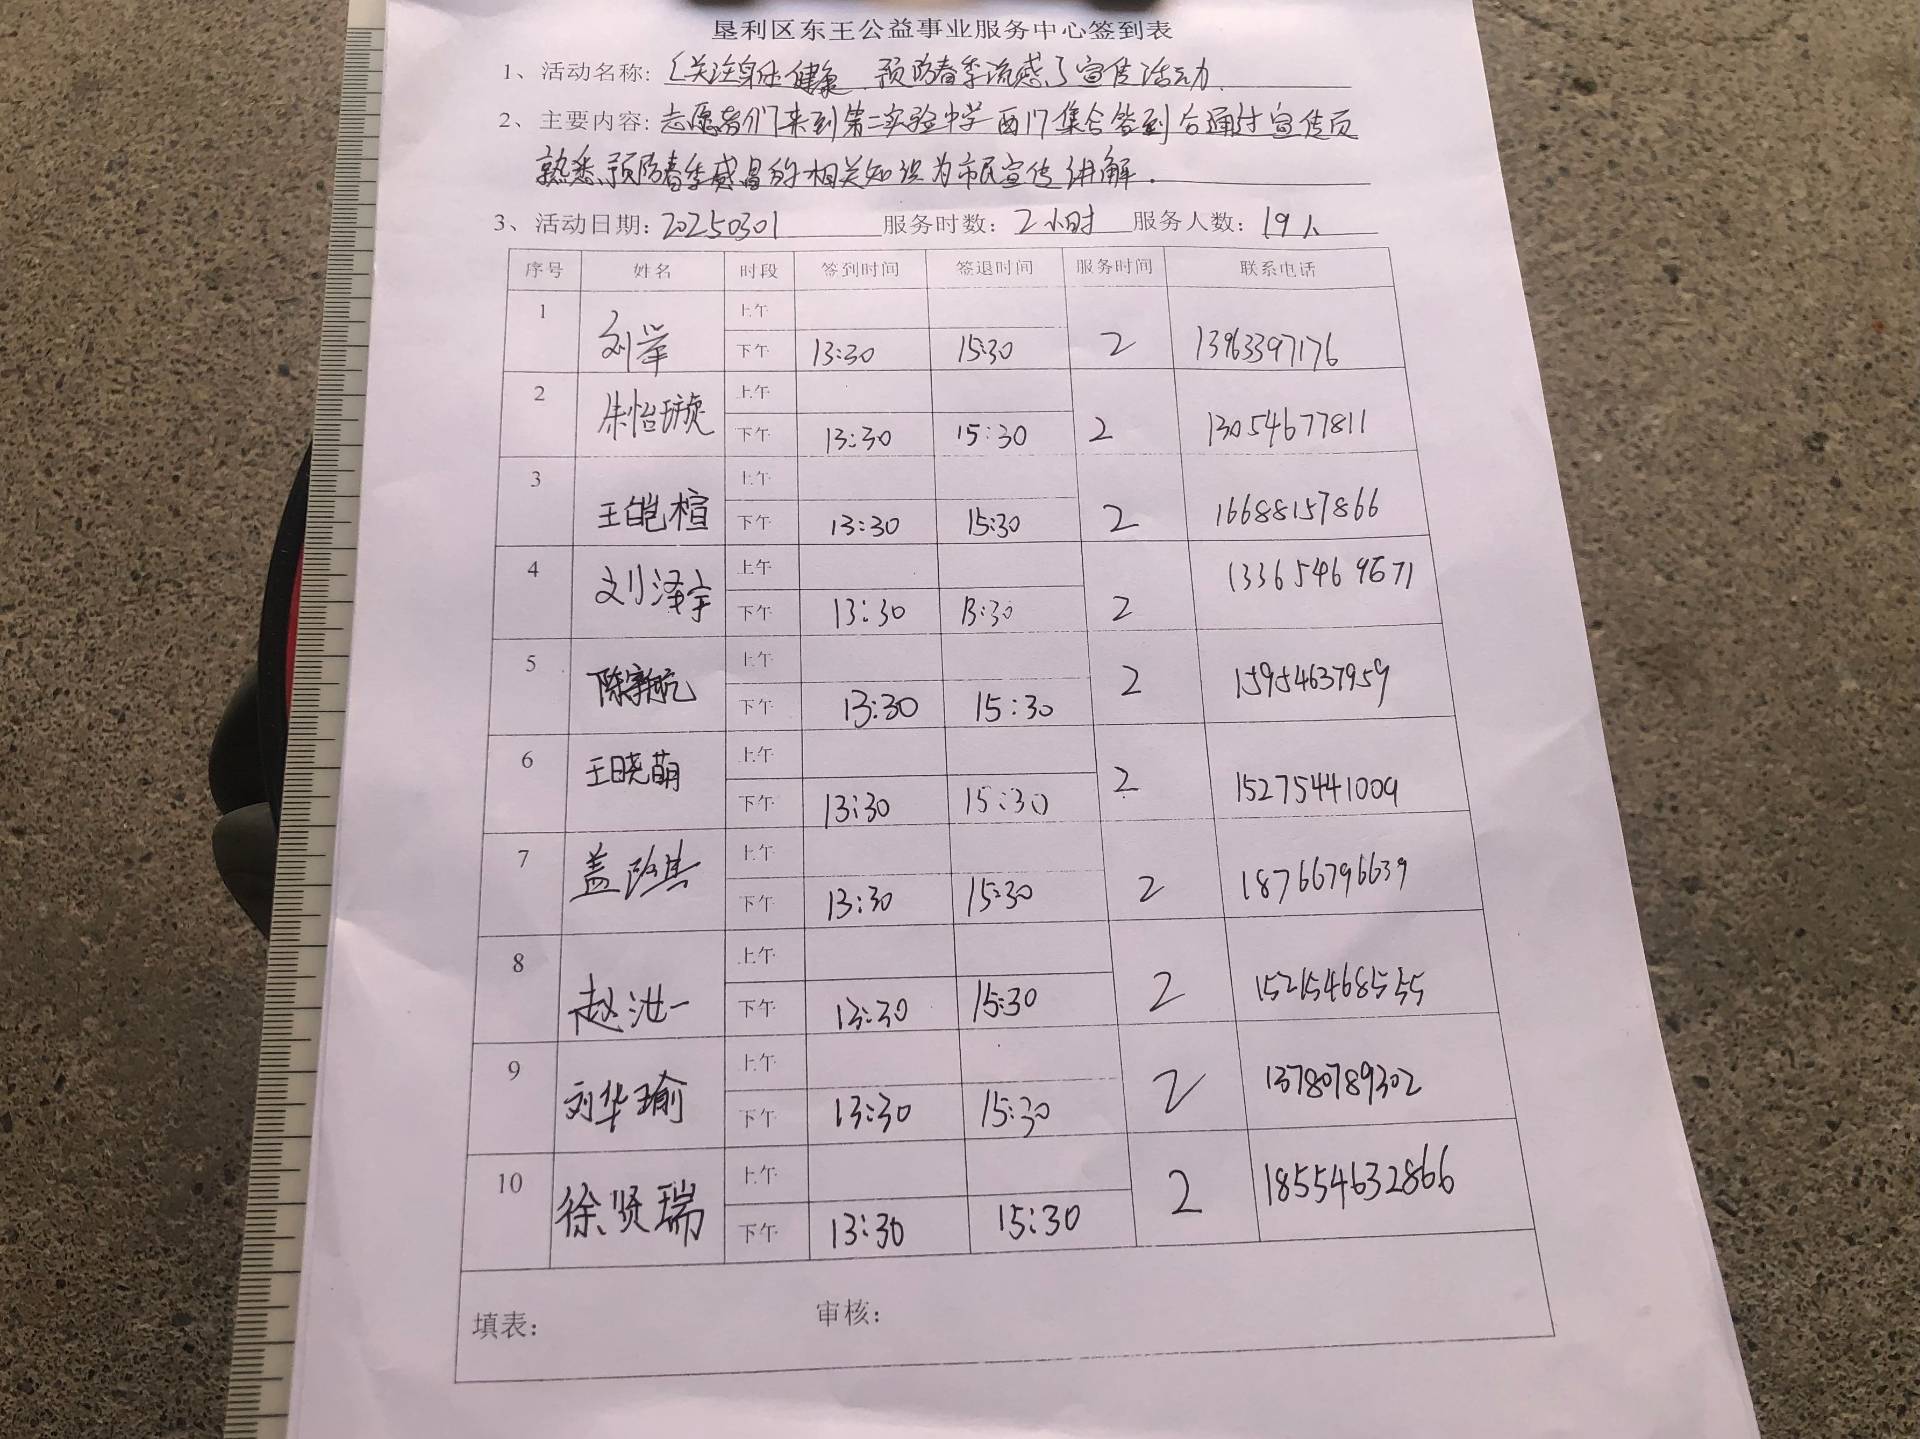 垦利区东王公益事业服务中心签到表
1、活动名称:“关注身心健康 预防春季流感”宣传活动.
2、主要内容:志愿者们来到第二实验中学西门集合签到后通过宣传页
熟悉预防春季感冒的相关知识为市民宣传讲解.
3、活动日期:20250301 服务时数:2小时 服务人数:19人
序号 姓名 时段 签到时间 签退时间 服务时间 联系电话
1 上午
刘举 下午 13:30 15:30 2 13963397176
2 上午
朱怡璇 下午 13:30 15:30 2 13054677811
3 上午
王皑楦 下午 13:30 15:30 2 16688157866
4 上午 13365469671
刘泽宇 下午 13:30 13:30 2
5 上午
陈新航 下午 13:30 15:30 2 15954637959
6 王晓萌 上午
下午 13:30 15:30 2 15275441009
7 上午
盖 下午 13:30 15:30 2 18766796639
8 上午
赵 一 下午 13:30 15:30 2 15215468555
9 上午
刘华瑜 下午 13:30 15:30 2 13780789302
10 上午
徐贤瑞 下午 13:30 15:30 2 18554632866
填表: 审核: